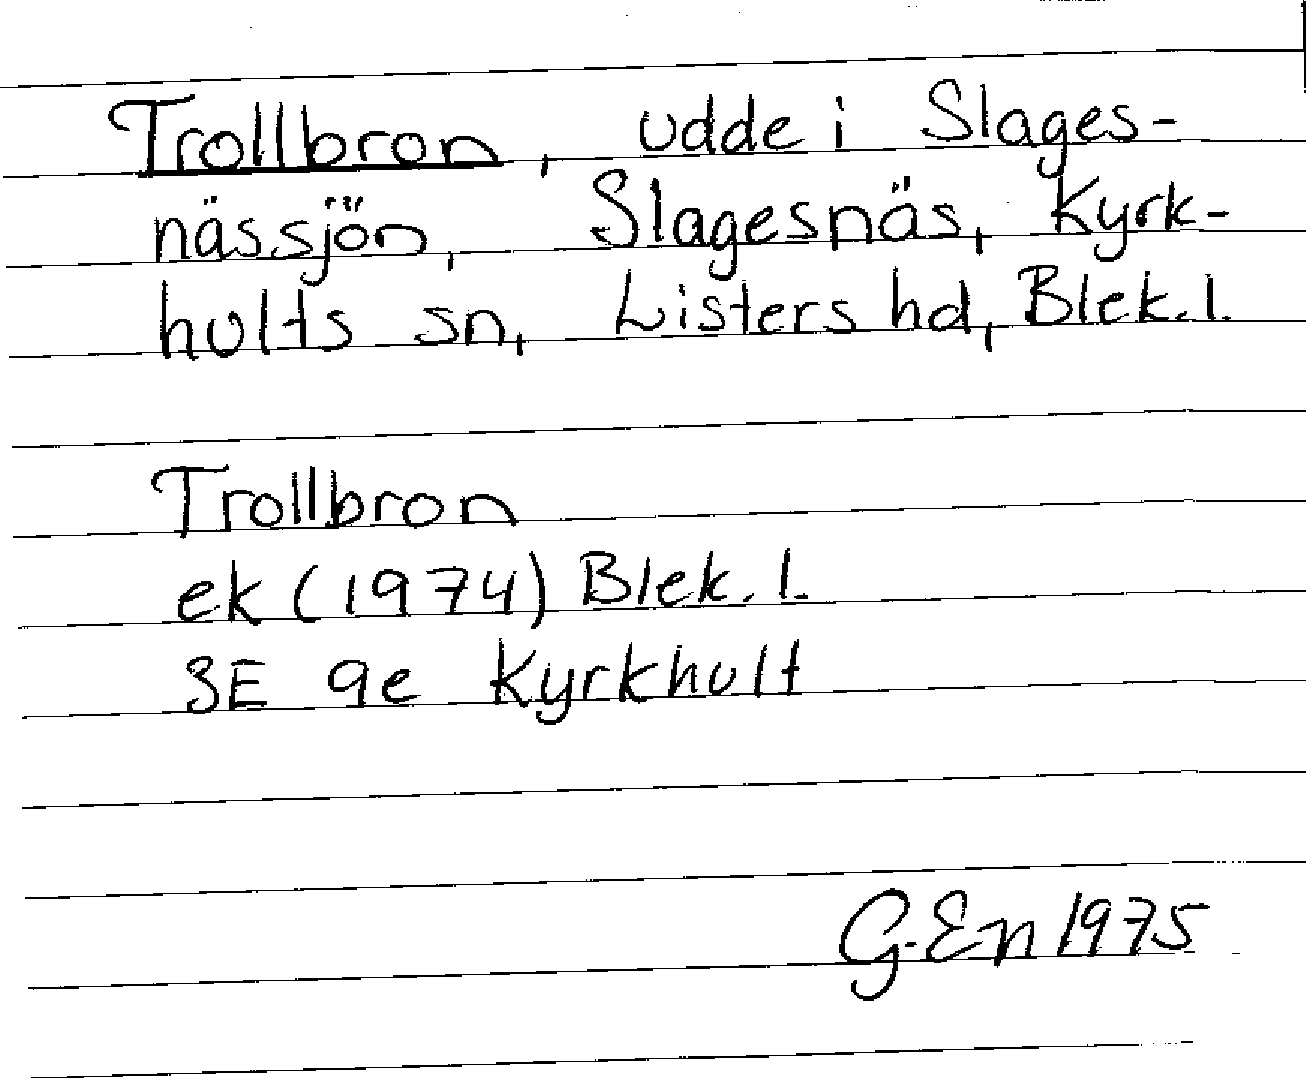 Trollbron, udde i Slages-
nässjön, Slagesnäs, Kyrk-
hults sn, Listers hd, Blek. l.
Trollbron
ek (1974) Blek. l.
3E 9e Kyrkhult
G. En 1975